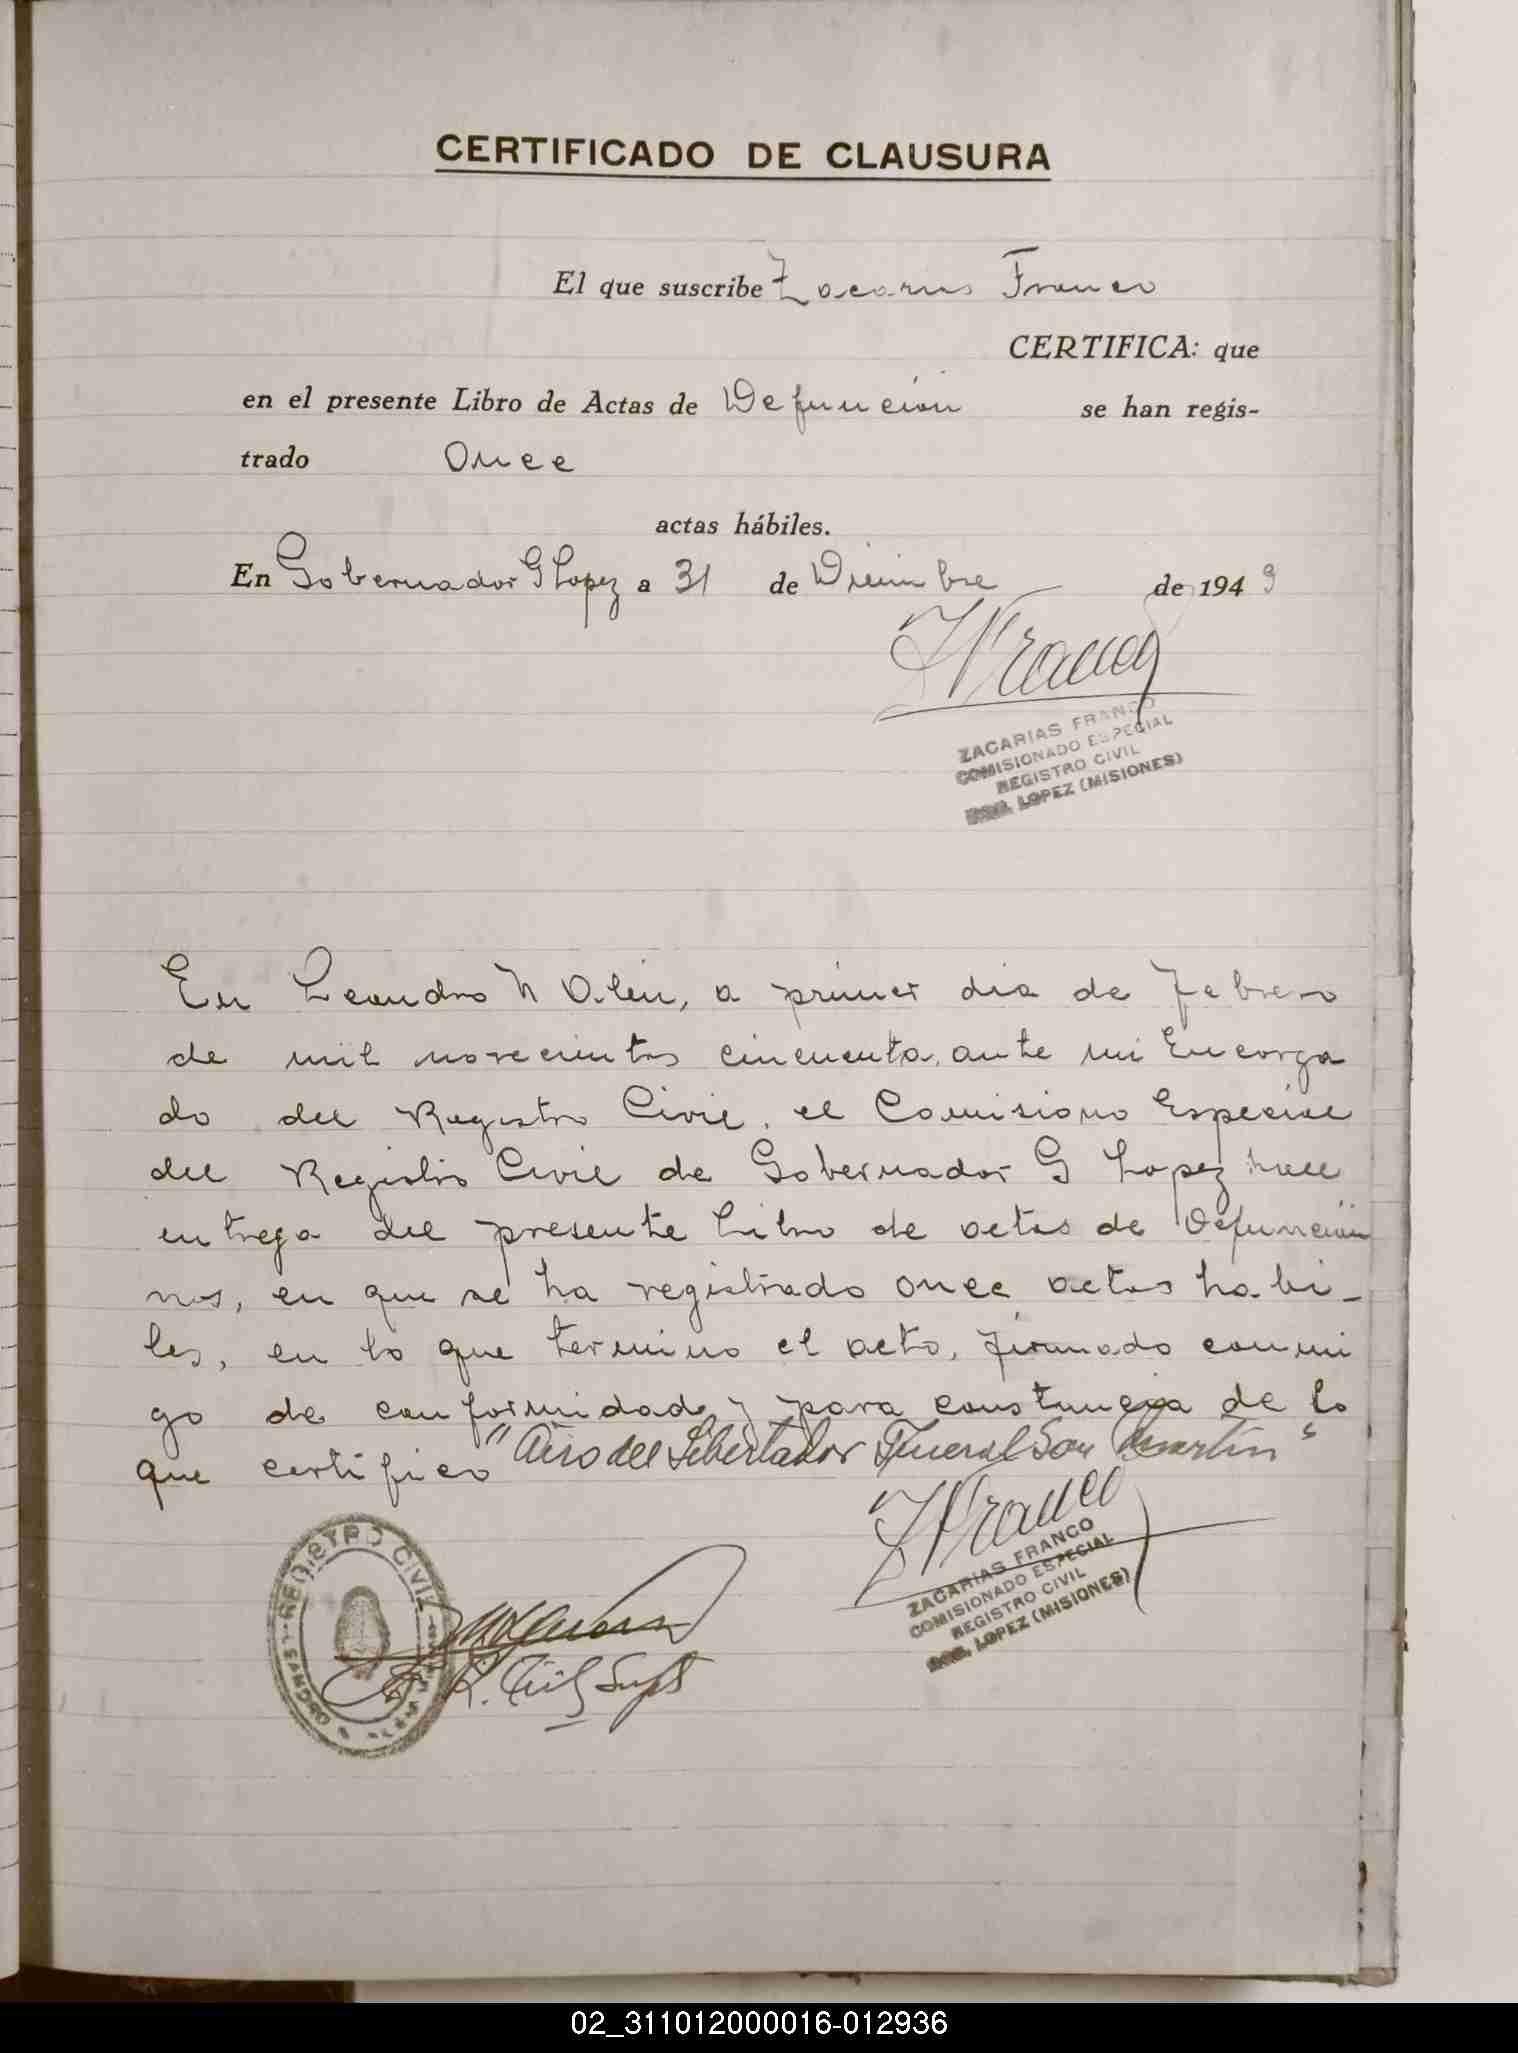 CERTIFICADO DE CLAUSURA
El que suscribe Zacarias Franco
CERTIFICA: que
en el presente Libro de Actas de Defunción se han regis-
trado Once
actas hábiles.
En Gobernador G Lopez a 31 de Diciembre de 1949
ZFranco
ZACARIAS FRANCO
COMISIONADO ESPECIAL
REGISTRO CIVIL
LOPEZ (MISIONES)
En Leandro N Alem, a primer dia de Febrero
de mil novecientos cincuenta, ante mi Encarga
do del Registro Civil, el Comisiono Especial
del Registro Civil de Gobernador G Lopez hace
entrega del presente Libro de actas de Defunción
nes, en que se ha registrado once actas habi-
les, en lo que termino el acto, firmado conmi
go de conformidad y para constancia de lo
que certifico "Año del Libertador General San Martín"
ZFranco
ZACARIAS FRANCO
COMISIONADO ESPECIAL
REGISTRO CIVIL
LOPEZ (MISIONES)
REGISTRO CIVIL
02_311012000016-012936